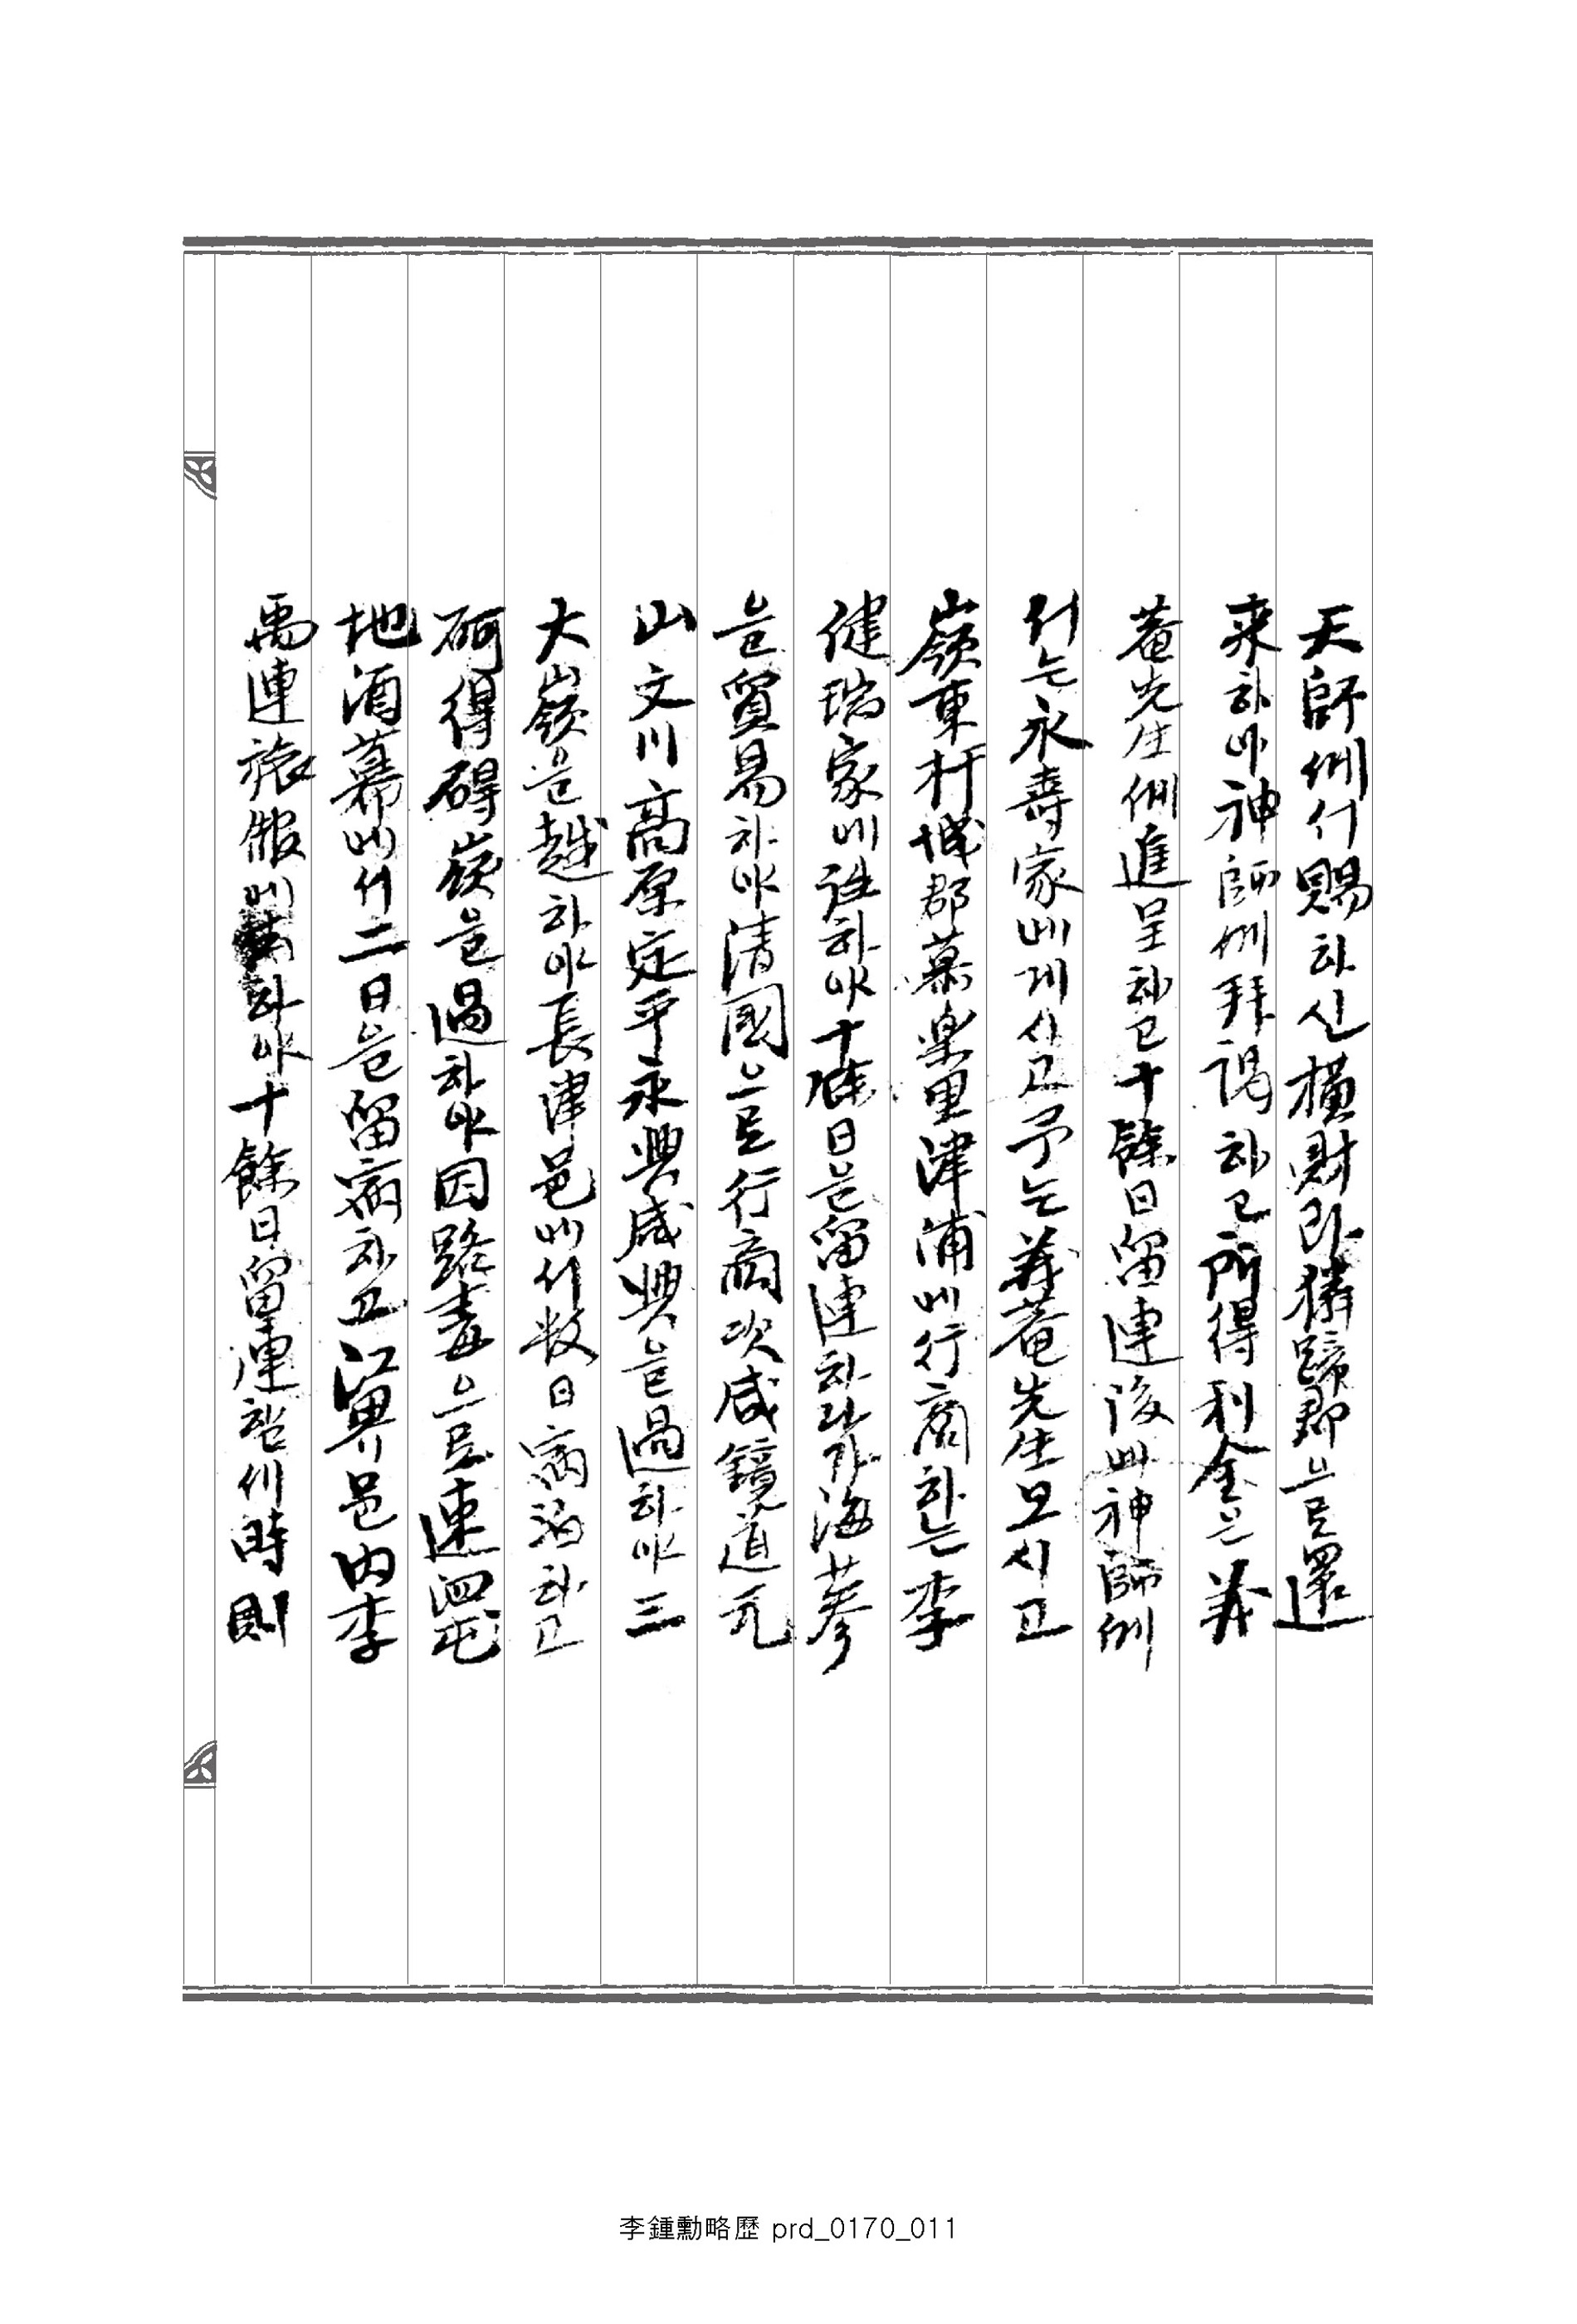 天師側서賜하신橫財라獜蹄郡으로還
来하야神師側拜謁하고所得利金은義
菴先生側進呈하고十餘日留連後에神師側
서는永壽家에계시고予는義菴先生모시고
嶺東杆城郡慕樂里津浦에行商하는李
健瑞家에往하야十餘日을留連하다가海蔘
을貿易하야清國으로行商次咸鏡道元
山文川高原定平永興咸興을過하야三
大嶺을越하야長津邑에서数日病泊하고
砢得碍嶺을過하야因路毒으로連泗屯
地酒幕에서二日을留病하고江界邑内李
禹連旅舘에 하야十餘日留連할세時則
李鍾勳略歷 prd_0170_011